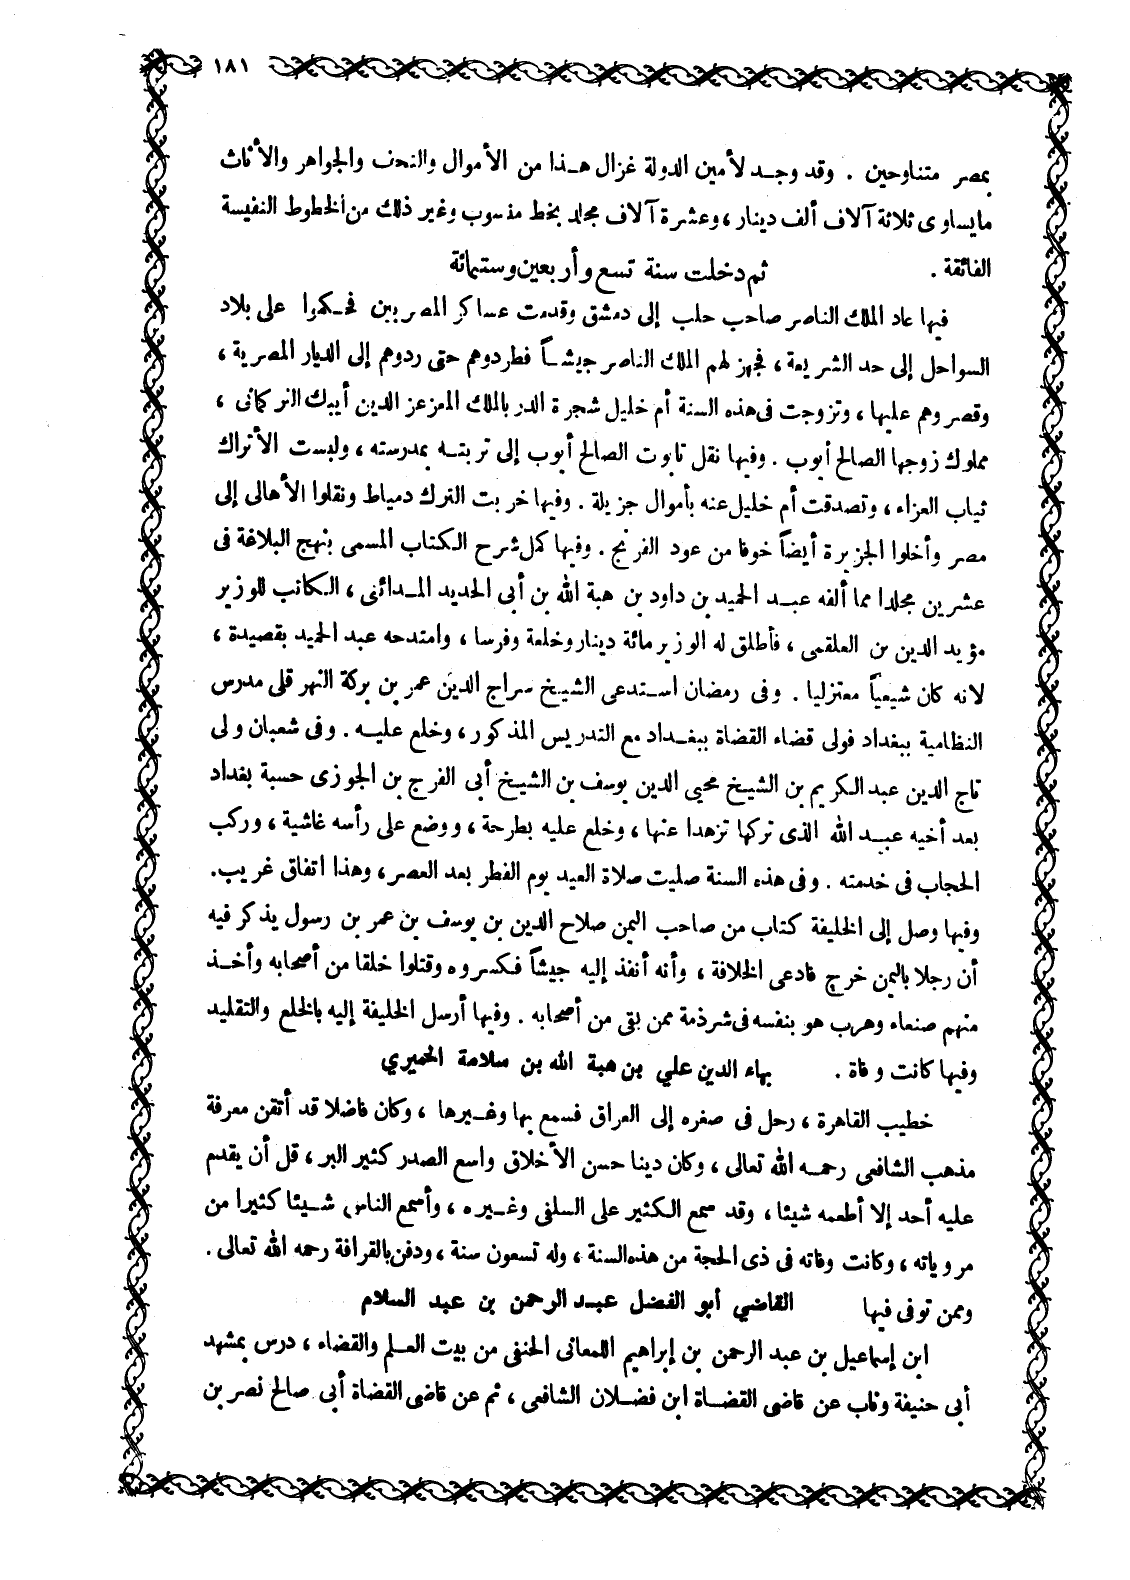 ١٨١
بمصر متناوحين . وقد وجد لأمين الدولة غزال هذا من الأموال والتحف والجواهر والأثاث
مايساوى ثلاثة آلاف ألف دينار ، وعشرة آلاف مجلد بخط منسوب وغير ذلك من الخطوط النفيسة
الفائقة . ثم دخلت سنة تسع وأربعين وستمائة
فيها عاد الملك الناصر صاحب حلب إلى دمشق وقدمت عساكر المصريين فحكموا على بلاد
السواحل إلى حد الشريعة ، فجهز لهم الملك الناصر جيشاً فطردوهم حتى ردوهم إلى الديار المصرية ،
وقصروهم عليها ، وتزوجت فى هذه السنة أم خليل شجرة الدر بالملك المعز عز الدين أيبك التركمانى ،
مملوك زوجها الصالح أيوب . وفيها نقل تابوت الصالح أيوب إلى تربته بمدرسته ، ولبست الأتراك
ثياب العزاء ، وتصدقت أم خليل عنه بأموال جزيلة . وفيها خربت الترك دمياط ونقلوا الأهالى إلى
مصر وأخلوا الجزيرة أيضاً خوفا من عود الفرنج . وفيها كمل شرح الكتاب المسمى بنهج البلاغة فى
عشرين مجلدا مما ألفه عبد الحميد بن داود بن هبة الله بن أبى الحديد المدائنى ، الكاتب للوزير
مؤيد الدين بن العلقمى ، فأطلق له الوزير مائة دينار وخلعة وفرسا ، وامتدحه عبد الحميد بقصيدة ،
لانه كان شيعياً معتزليا . وفى رمضان استدعى الشيخ سراج الدين عمر بن بركة النهرقلى مدرس
النظامية ببغداد فولى قضاء القضاة ببغداد مع التدريس المذكور ، وخلع عليه . وفى شعبان ولى
تاج الدين عبد الكريم بن الشيخ محيى الدين يوسف بن الشيخ أبى الفرج بن الجوزى حسبة بغداد
بعد أخيه عبد الله الذى تركها تزهدا عنها ، وخلع عليه بطرحة ، ووضع على رأسه غاشية ، وركب
الحجاب فى خدمته . وفى هذه السنة صليت صلاة العيد يوم الفطر بعد العصر ، وهذا اتفاق غريب .
وفيها وصل إلى الخليفة كتاب من صاحب اليمن صلاح الدين بن يوسف بن عمر بن رسول يذكر فيه
أن رجلا باليمن خرج فادعى الخلافة ، وأنه أنفذ إليه جيشاً فكسروه وقتلوا خلقا من أصحابه وأخذ
منهم صنعاء وهرب هو بنفسه فى شرذمة ممن بقى من أصحابه . وفيها أرسل الخليفة إليه بالخلع والتقليد
وفيها كانت وفاة . بهاء الدين علي بن هبة الله بن سلامة الحميري
خطيب القاهرة ، رحل فى صغره إلى العراق فسمع بها وغيرها ، وكان فاضلا قد أتقن معرفة
مذهب الشافعى رحمه الله تعالى ، وكان دينا حسن الأخلاق واسع الصدر كثير البر ، قل أن يقدم
عليه أحد إلا أطعمه شيئا ، وقد سمع الكثير على السلفى وغيره ، وأسمع الناس شيئا كثيرا من
مروياته ، وكانت وفاته فى ذى الحجة من هذه السنة ، وله تسعون سنة ، ودفن بالقرافة رحمه الله تعالى .
وممن توفى فيها القاضي أبو الفضل عبد الرحمن بن عبد السلام
ابن إسماعيل بن عبد الرحمن بن إبراهيم اللمعانى الحنفى من بيت العلم والقضاء ، درس بمشهد
أبى حنيفة وناب عن قاضى القضاة ابن فضلان الشافعى ، ثم عن قاضى القضاة أبى صالح نصر بن